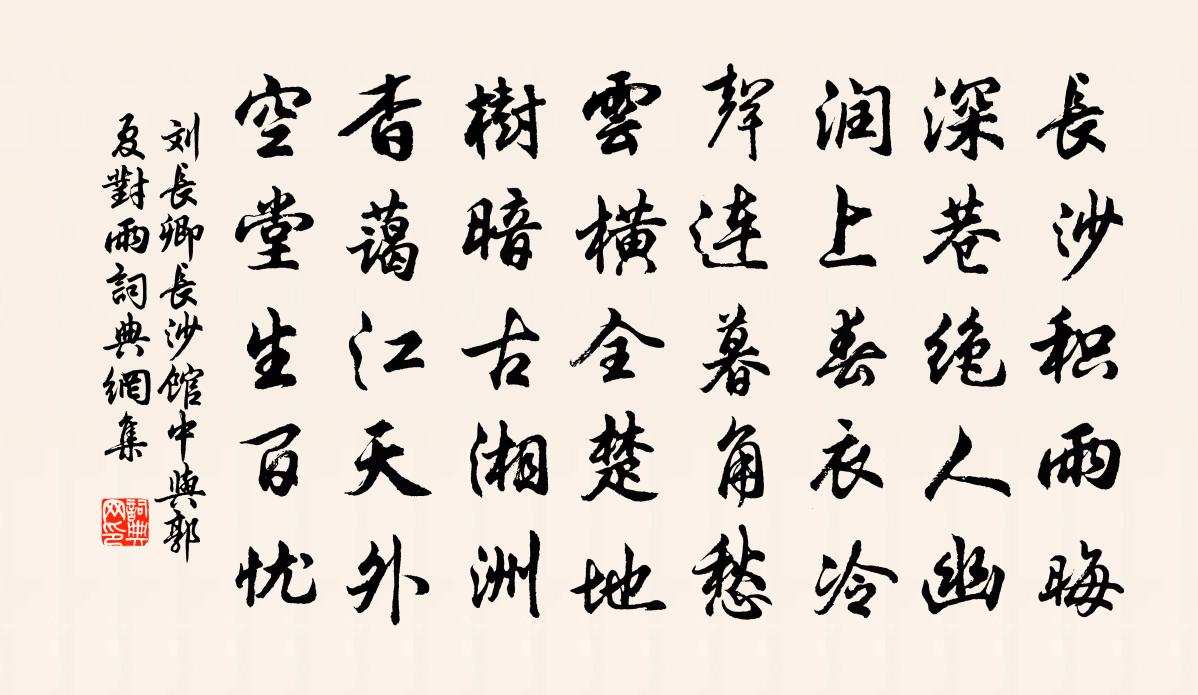 長沙积雨晦
深巷绝人幽
润上春衣冷
聲连暮角愁
雲横全楚地
樹暗古湘洲
杳藹江天外
空堂生百忧
刘長卿長沙館中與郭
夏對雨詞典網集
詞典
网印